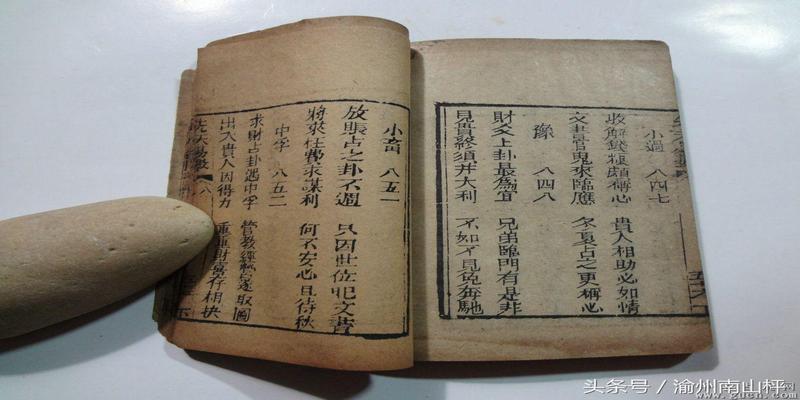 小過 八四七
收解錢糧頗稱心 貴人相助必如情
文書官鬼來臨應 冬夏占之更稱心
豫 八四八
財爻上卦最爲宜 兄弟臨門有是非
見貴終須并大利 不如不見免奔馳
小畜 八五一
放賬占之卦不週 只因世位犯文書
將來任費求謀利 何不安心且待秋
中孚 八五二
求財占卦遇中孚 管教經營遂取圖
出入貴人因得力 重重財喜存相
头条号／渝州南山枰
www.gucn.com